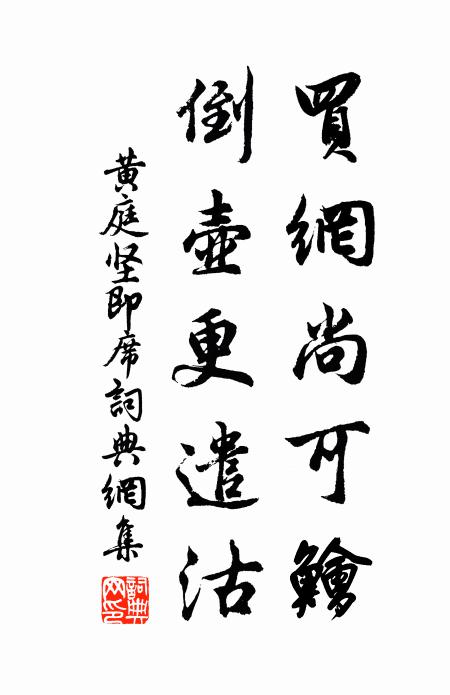 買網尚可鱠
倒壺更遣沽
黄庭坚即席詞典網集
詞典網印